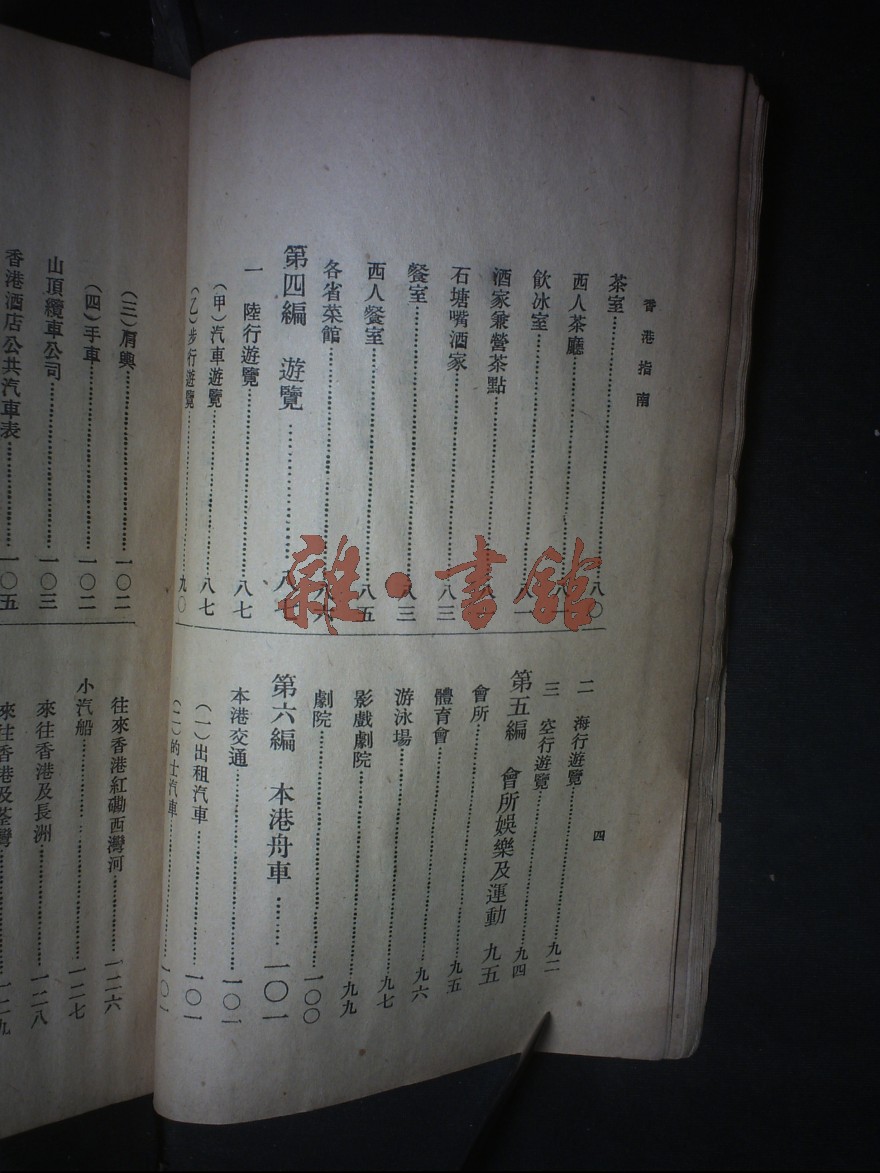 香港指南
四
茶室……八〇
西人茶廳……八
飲冰室……八一
酒家兼營茶點……八
石塘嘴酒家……八三
餐室……八三
西人餐室……八五
各省菜館……八六
第四編 遊覽……八七
一 陸行遊覽……八七
(甲)汽車遊覽……八七
(乙)步行遊覽……九〇
二 海行遊覽……九二
三 空行遊覽……九四
第五編 會所娛樂及運動 九五
會所……九五
體育會……九六
游泳場……九七
影戲劇院……九九
劇院……一〇〇
第六編 本港舟車……一〇一
本港交通……一〇一
(一)出租汽車……一〇一
(二)的士汽車……一〇一
(三)肩輿……一〇二
(四)手車……一〇二
山頂纜車公司……一〇三
香港酒店公共汽車表……一〇五
往來香港紅磡西灣河……一二六
小汽船……一二七
來往香港及長洲……一二八
來往香港及荃灣……一二九
雜·書館